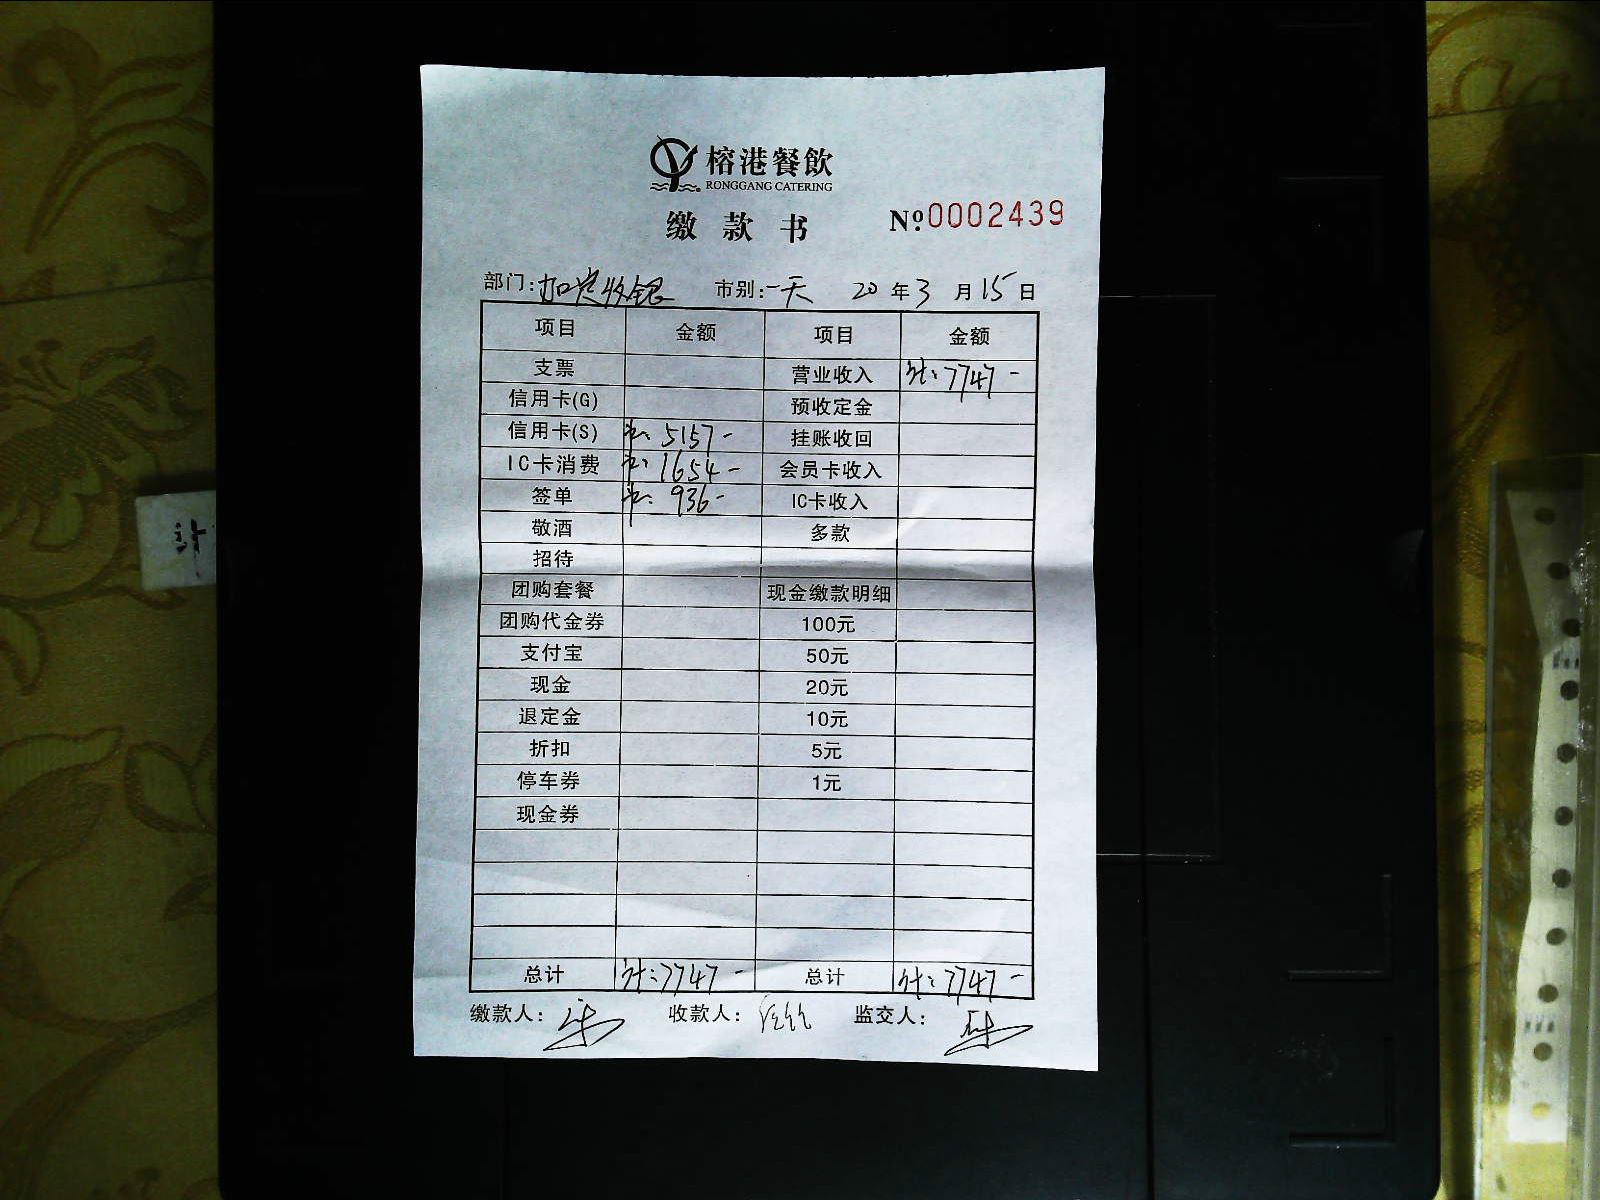 榕港餐飲
RONGGANG CATERING
缴款书 №0002439
部门: 加洪收银 市别: 一天 20年3月15日
项目 金额 项目 金额
支票 营业收入 计:7747-
信用卡(G) 预收定金
信用卡(S) 5157- 挂账收回
IC卡消费 1654- 会员卡收入
签单 936- IC卡收入
敬酒 多款
招待
团购套餐 现金缴款明细
团购代金券 100元
支付宝 50元
现金 20元
退定金 10元
折扣 5元
停车券 1元
现金券
总计 计:7747- 总计 计:7747-
缴款人: 收款人: 监交人: